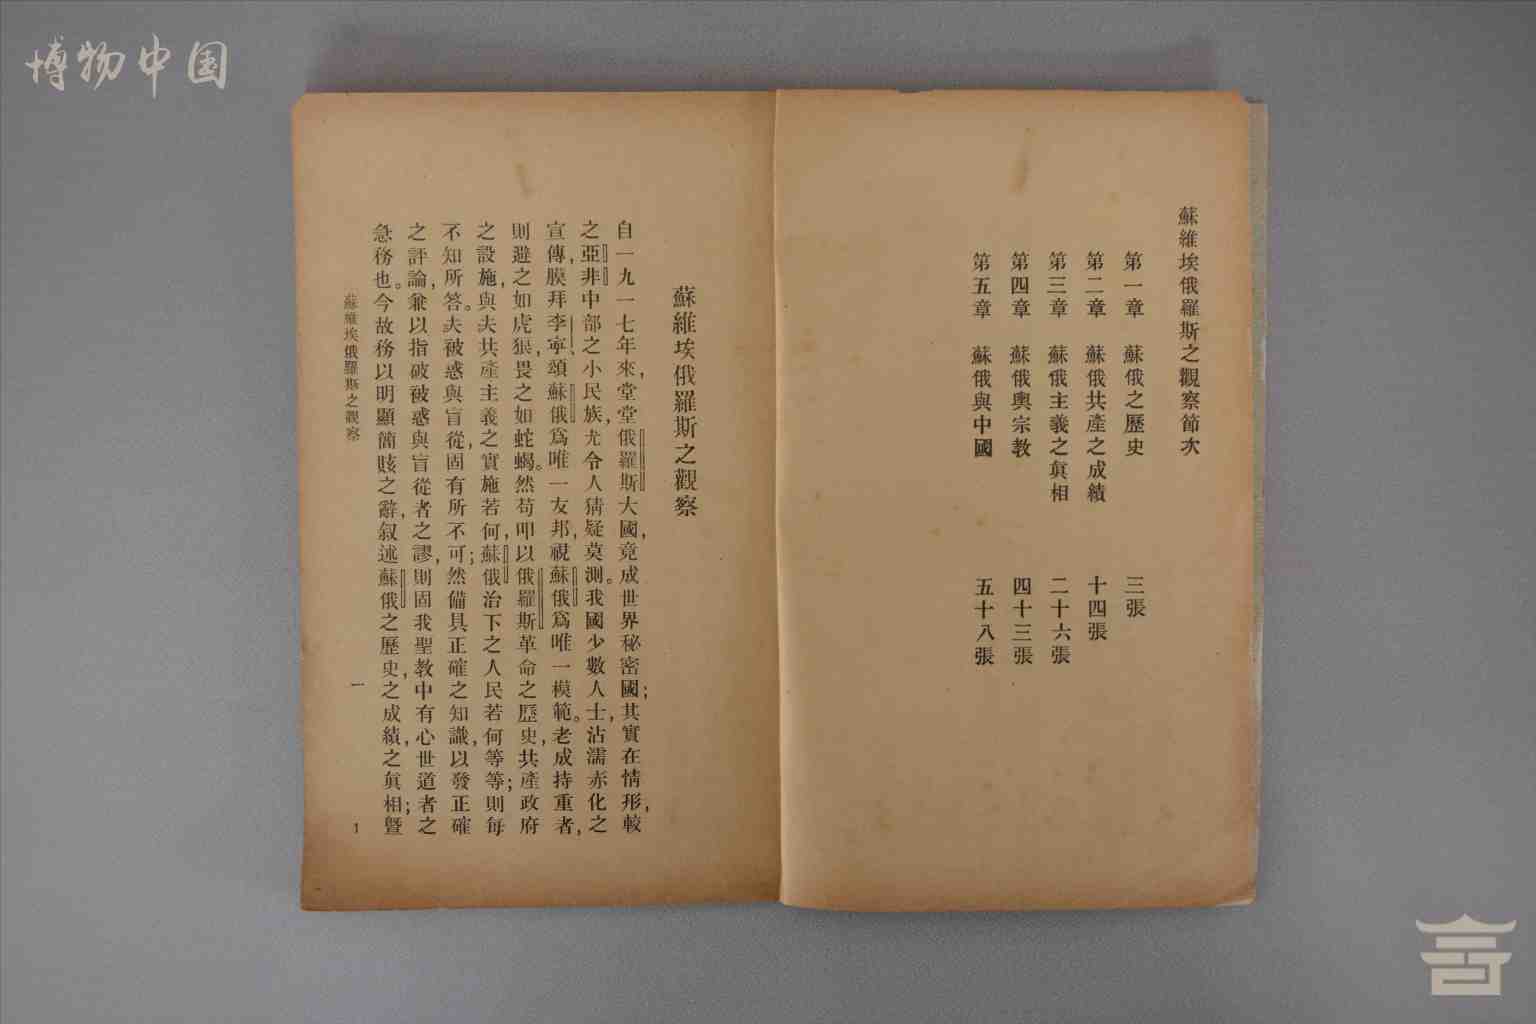 博物中国
蘇維埃俄羅斯之觀察節次
第一章 蘇俄之歷史 三張
第二章 蘇俄共產之成績 十四張
第三章 蘇俄主義之眞相 二十六張
第四章 蘇俄與宗教 四十三張
第五章 蘇俄與中國 五十八張
蘇維埃俄羅斯之觀察
自一九一七年來,堂堂俄羅斯大國,竟成世界秘密國;其實在情形,較
之亞非中部之小民族,尤令人猜疑莫測。我國少數人士,沾濡赤化之
宣傳,膜拜李寧、頌蘇俄爲唯一友邦,視蘇俄爲唯一模範。老成持重者,
則避之如虎狠,畏之如蛇蝎。然苟叩以俄羅斯革命之歷史,共產政府
之設施,與夫共產主義之實施若何,蘇俄治下之人民若何等等;則每
不知所答。夫被惑與盲從,固有所不可;然備具正確之知識,以發正確
之評論,兼以指破被惑與盲從者之謬,則固我聖教中有心世道者之
急務也。今故務以明顯簡賅之辭,叙述蘇俄之歷史,之成績,之眞相;曁
蘇維埃俄羅斯之觀察 一
1